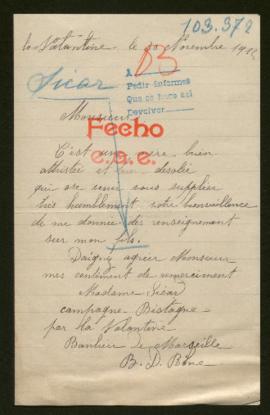 103.372
la Valantine le 30 Novembre 191
A 03
Sicar
Pedir informes
Que se haga así
Devolver
Monsieur
Fecho
C'est une mère bien
attristée et bien désolée
qui ose venir vous supplier
très humblement votre bienveillance
de me donner des renseignement
sur mon fils.
Daigny agréer Monsieur
mes sentiment de remerciment
Madame Sicard
campagne Bistagne
par la Valantine
Banlieu de Marseille
B. D. Rhne